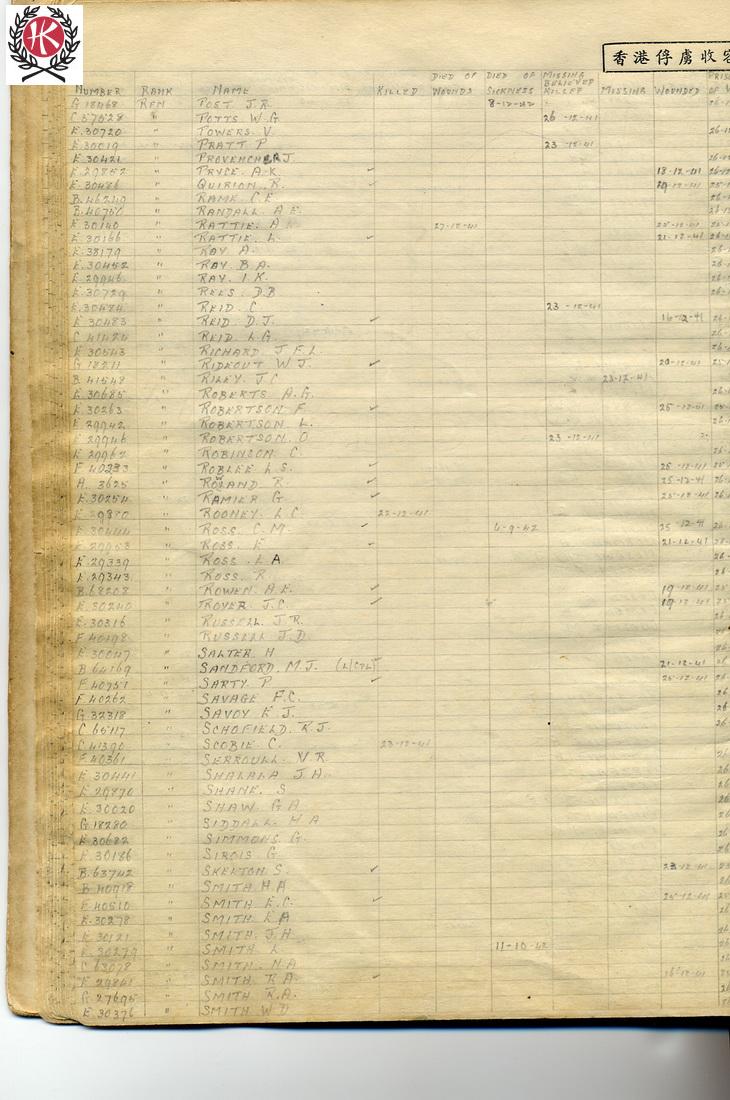 HK
香港俘虜收容
NUMBER RANK NAME KILLED DIED OF WOUNDS DIED OF SICKNESS MISSING BELIEVED KILLED MISSING WOUNDED
G 18468 RFM POST J.R. 8-12-42
C 57528 " POTTS W.G 26-12-41
E.30720 " TOWERS V.
E.30019 " PRATT P 23-12-41
E 30421 " PROVENCHER J.
E.29852 " PRYCE A.K. ✓ 18-12-41
E.30486 " QUIRION R. ✓ 19-12-41
B.46249 " RAME C.E
B.40750 " RANDALL A E.
E 30140 " RATTIE. A 27-12-41 25-12-41
E 30166 " RATTIE L. ✓ 21-12-41
E.38179 " RAY A.
E.30452 " RAY B A.
E 29946 " RAY. I K.
E.30729 " REES. D.B
E.30484 " REID C 23-12-41
E 30483 " REID D.J. ✓ 16-12-41
C 41424 " REID L G.
E 30543 " RICHARD J F.L.
G 18211 " RIDEOUT W J. ✓ 20-12-41
B 41548 " RILEY J C 23-12-41
E 30685 " ROBERTS A.G.
E 30263 " ROBERTSON F ✓ 25-12-41
E 29942 " ROBERTSON L.
E 29946 " ROBERTSON. O 23-12-41
E 29962 " ROBINSON C.
F 40233 " ROBLEE L S. ✓ 25-12-41
A. 3625 " ROWLAND R. ✓ 25-12-41
E.30254 " RAMIER G ✓ 25-12-41
E 29880 " ROONEY L C 22-12-41
E 30444 " ROSS C.M. ✓ 6-9-42 25-12-41
E 29953 " ROSS E ✓ 21-12-41
E 29339 " ROSS L A
E 29343 " ROSS R
B.68208 " ROWEN A.E. ✓ 19-12-41
E.30240 " ROYER J.C. ✓ 19-12-41
E.30316 " RUSSELL J.R.
F 40198 " RUSSELL J.D.
E 30047 " SALTER H
B 64169 " SANDFORD M.J. (L/CPL) ✓ 21-12-41
F 40951 " SARTY P ✓ 25-12-41
F 40262 " SAVAGE F.C.
G.32318 " SAVOY E J.
C 65117 " SCHOFIELD. R.J.
C 41390 " SCOBIE C. 23-12-41
F 40361 " SERROULL V R.
E 30441 " SHALALA J A.
E 29870 " SHANE. S
E 30020 " SHAW. G A
G 18280 " SIDDALL. H A
E 30682 " SIMMONS. G.
E 30186 " SIROIS G.
B.63742 " SKELTON S. ✓ 23-12-41
B 40918 " SMITH H A
F 40510 " SMITH E.C. ✓ 25-12-41
E.30278 " SMITH E A
E 30121 " SMITH. J.H.
E.30279 " SMITH L 11-10-42
C 63078 " SMITH. N.A
E 29841 " SMITH R A. ✓ 16-12-41
G 27695 " SMITH R.A.
E 30376 " SMITH W D